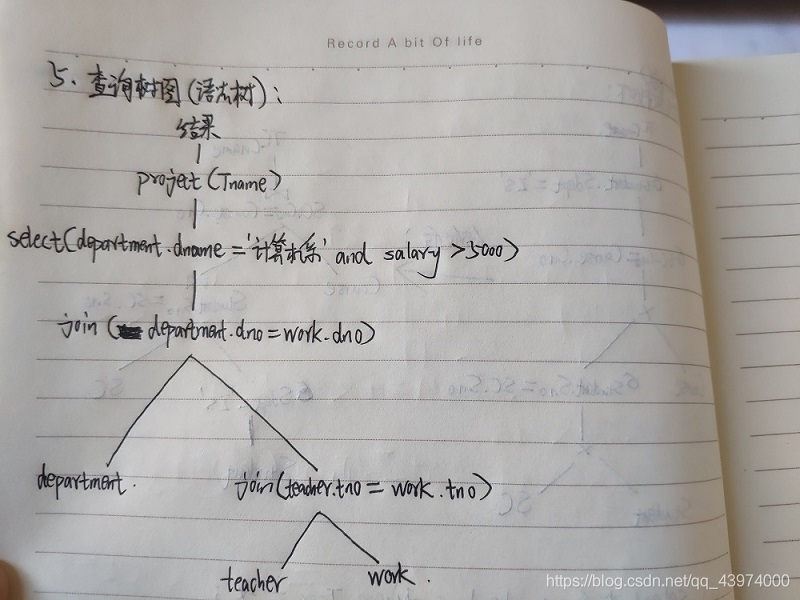 Record A bit Of life
5. 查询树图(语法树):
结果
project(Tname)
select(department.dname='计算机系' and salary>5000)
join(department.dno=work.dno)
department.
join(teacher.tno=work.tno)
teacher
work.
https://blog.csdn.net/qq_43974000